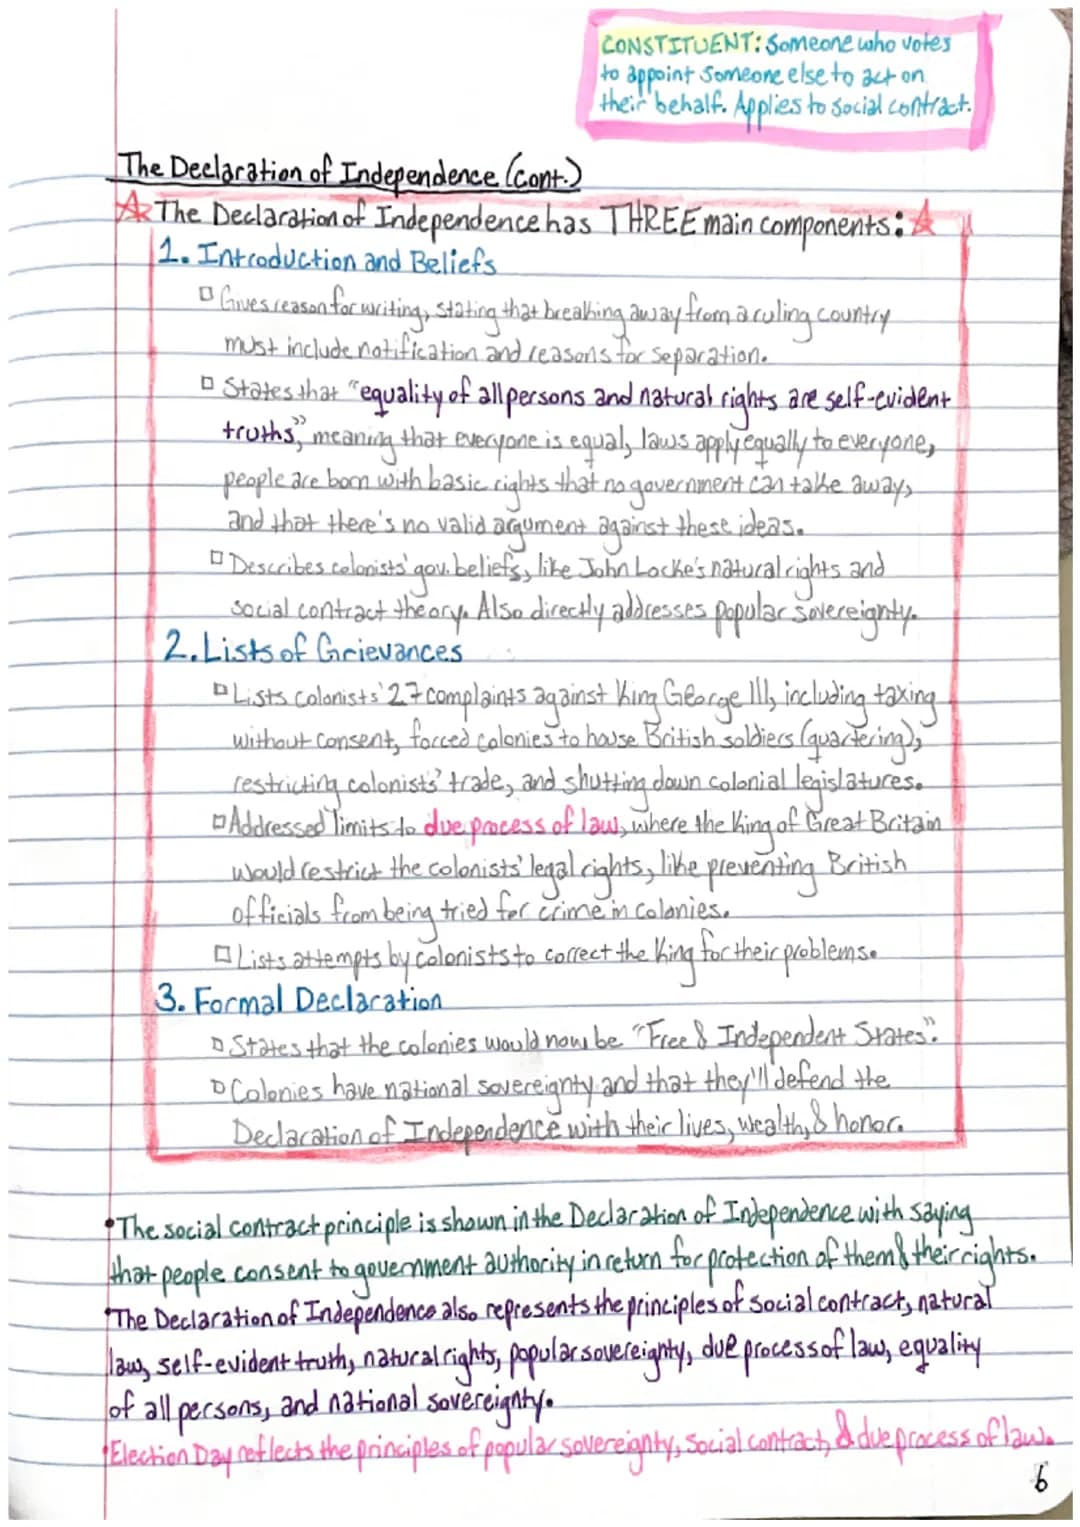 CONSTITUENT: Someone who votes
to appoint someone else to act on
their behalf. Applies to social contract.
The Declaration of Independence (cont.)
The Declaration of Independence has THREE main components:
1. Introduction and Beliefs
Gives reason for writing, stating that breaking away from a ruling country
must include notification and reasons for separation.
States that "equality of all persons and natural rights are self-evident
truths," meaning that everyone is equal, laws apply equally to everyone,
people are born with basic rights that no government can take away,
and that there's no valid argument against these ideas.
Describes colonists' gov. beliefs, like John Locke's natural rights and
social contract theory. Also directly addresses popular sovereignty.
2. Lists of Grievances
Lists colonists' 27 complaints against King George III, including taxing
without consent, forced colonies to house British soldiers (quartering),
restricting colonists' trade, and shutting down colonial legislatures.
Addressed limits to due process of law, where the King of Great Britain
would restrict the colonists' legal rights, like preventing British
officials from being tried for crime in colonies.
Lists attempts by colonists to correct the King for their problems.
3. Formal Declaration
States that the colonies would now be "Free & Independent States".
Colonies have national sovereignty and that they'll defend the
Declaration of Independence with their lives, wealth, & honor.
•The social contract principle is shown in the Declaration of Independence with saying
that people consent to government authority in return for protection of them & their rights.
•The Declaration of Independence also represents the principles of social contract, natural
law, self-evident truth, natural rights, popular sovereignty, due process of law, equality
of all persons, and national sovereignty.
•Election Day reflects the principles of popular sovereignty, social contract, & due process of law.
6